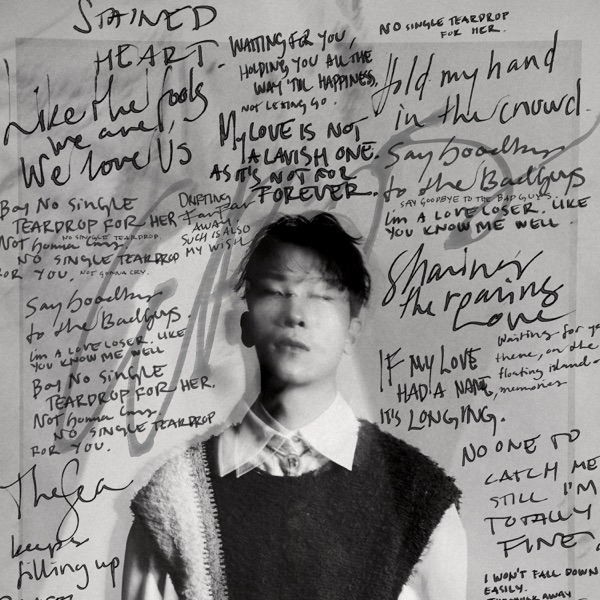 STAINED
HEART
Like the fools
we are,
We love Us
Boy NO SINGLE
TEARDROP FOR HER
NO SINGLE TEARDROP.
Not gonna cry.
NO SINGLE TEARDROP
FOR YOU.
NOT GONNA CRY.
Say Goodbye
to the BadGuys.
I'm A LOVE LOSER. LIKE
YOU KNOW ME WELL
Boy NO SINGLE
TEARDROP FOR HER.
Not Gonna Cry.
NO SINGLE TEARDROP
FOR YOU.
The Sea
keeps
filling up
WAITING FOR YOU,
HOLDING YOU ALL THE
WAY 'TIL HAPPINESS.
NOT LETTING GO.
My LOVE IS NOT
A LAVISH ONE.
AS IT'S NOT FOR
FOREVER.
DRIFTING
Far Far
AWAY.
SUCH IS ALSO
MY WISH
NO SINGLE TEARDROP
FOR HER.
Hold my hand
in the crowd.
Say Goodbye
to the BadGuys
SAY GOODBYE TO THE BAD GUYS
I'm A LOVE LOSER. LIKE
YOU KNOW ME WELL.
Sharing
the roaring
Love
IF MY LOVE
HAD A NAME,
IT'S LONGING.
Waiting for
there, on the
floating island
memories
NO ONE TO
CATCH ME
STILL I'M
TOTALLY
FINE
I WON'T FALL DOWN
EASILY.